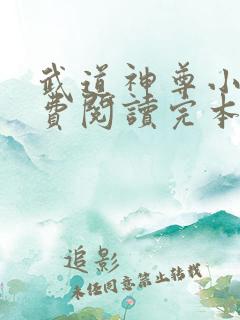 武道神尊小
費閱讀完本
追影
未经同意禁止转载